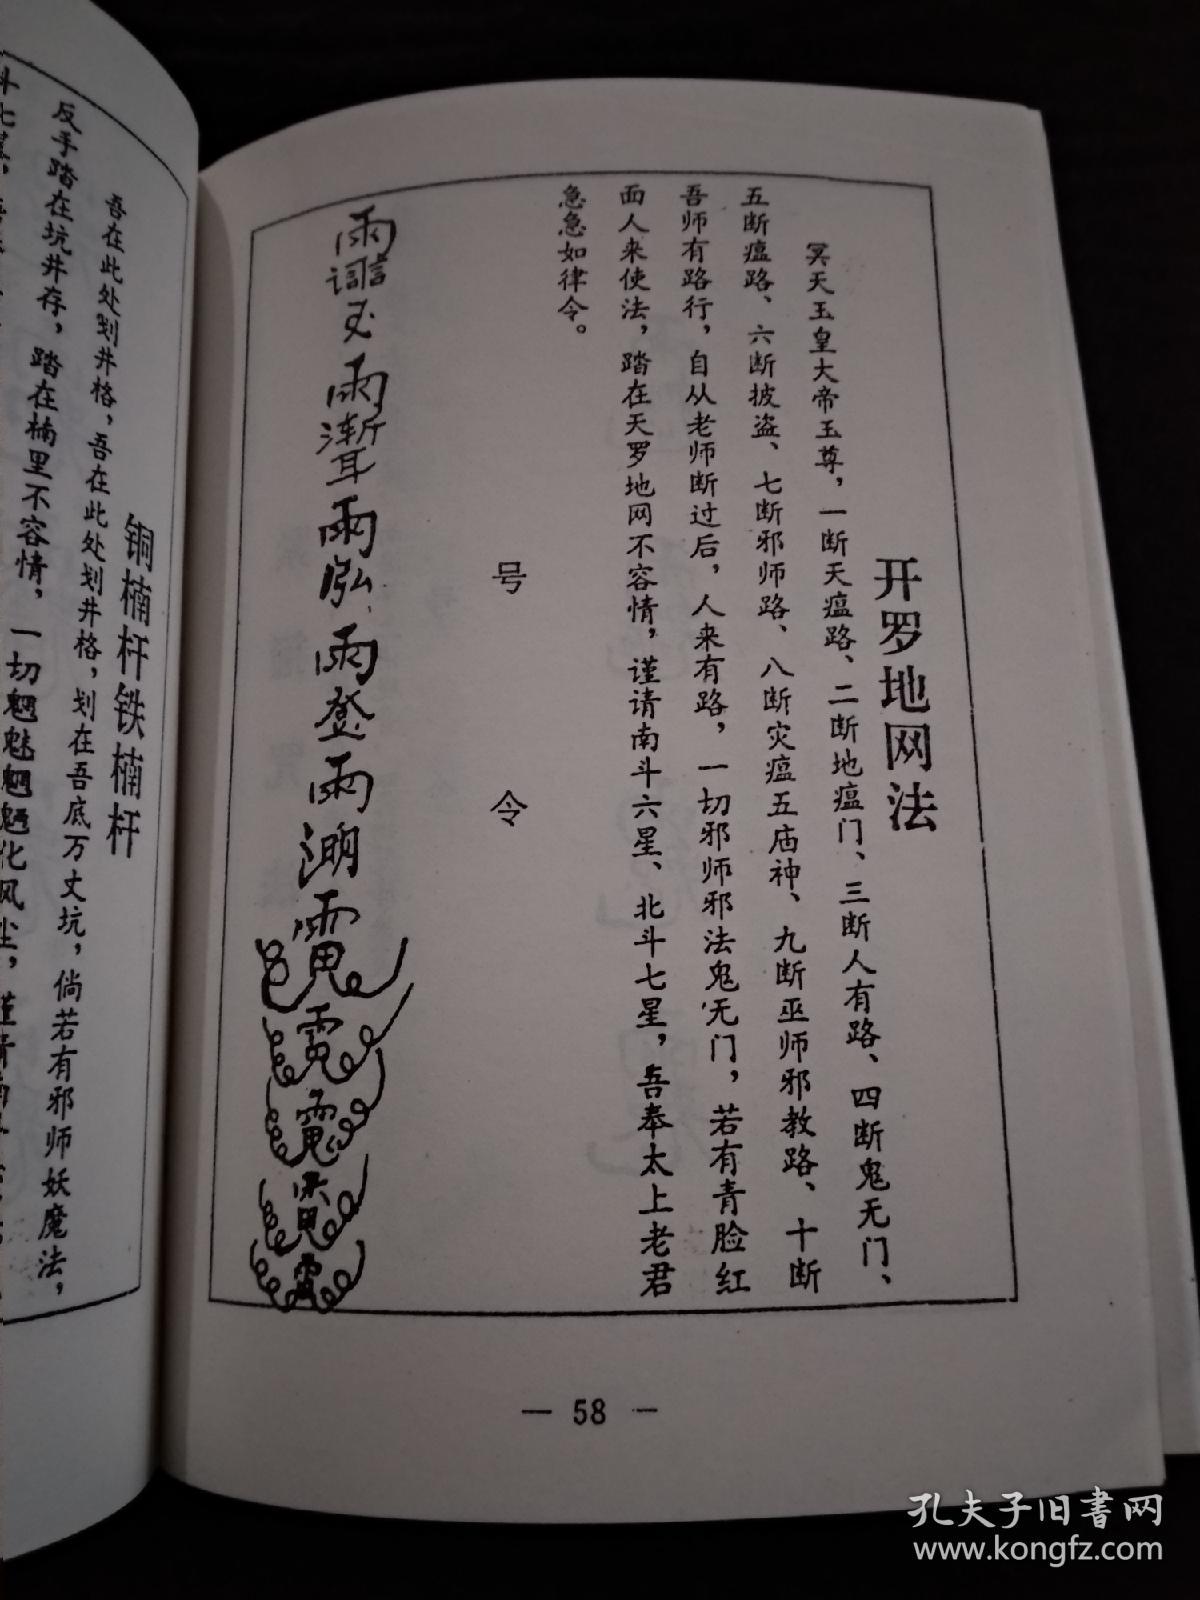 开罗地网法
冥天玉皇大帝玉尊，一断天瘟路、二断地瘟门、三断人有路、四断鬼无门、
五断瘟路、六断披盗、七断邪师路、八断灾瘟五庙神、九断巫师邪教路、十断
吾师有路行，自从老师断过后，人来有路，一切邪师邪法鬼无门，若有青脸红
面人来使法，踏在天罗地网不容情，谨请南斗六星、北斗七星，吾奉太上老君
急急如律令。
号令
— 58 —
铜楠杆铁楠杆
吾在此处划井格，吾在此处划井格，划在吾底万丈坑，倘若有邪师妖魔法，
反手踏在坑井存，踏在楠里不容情，一切魍魅魍魉化风尘，谨请南
孔夫子旧书网
www.kongfz.com